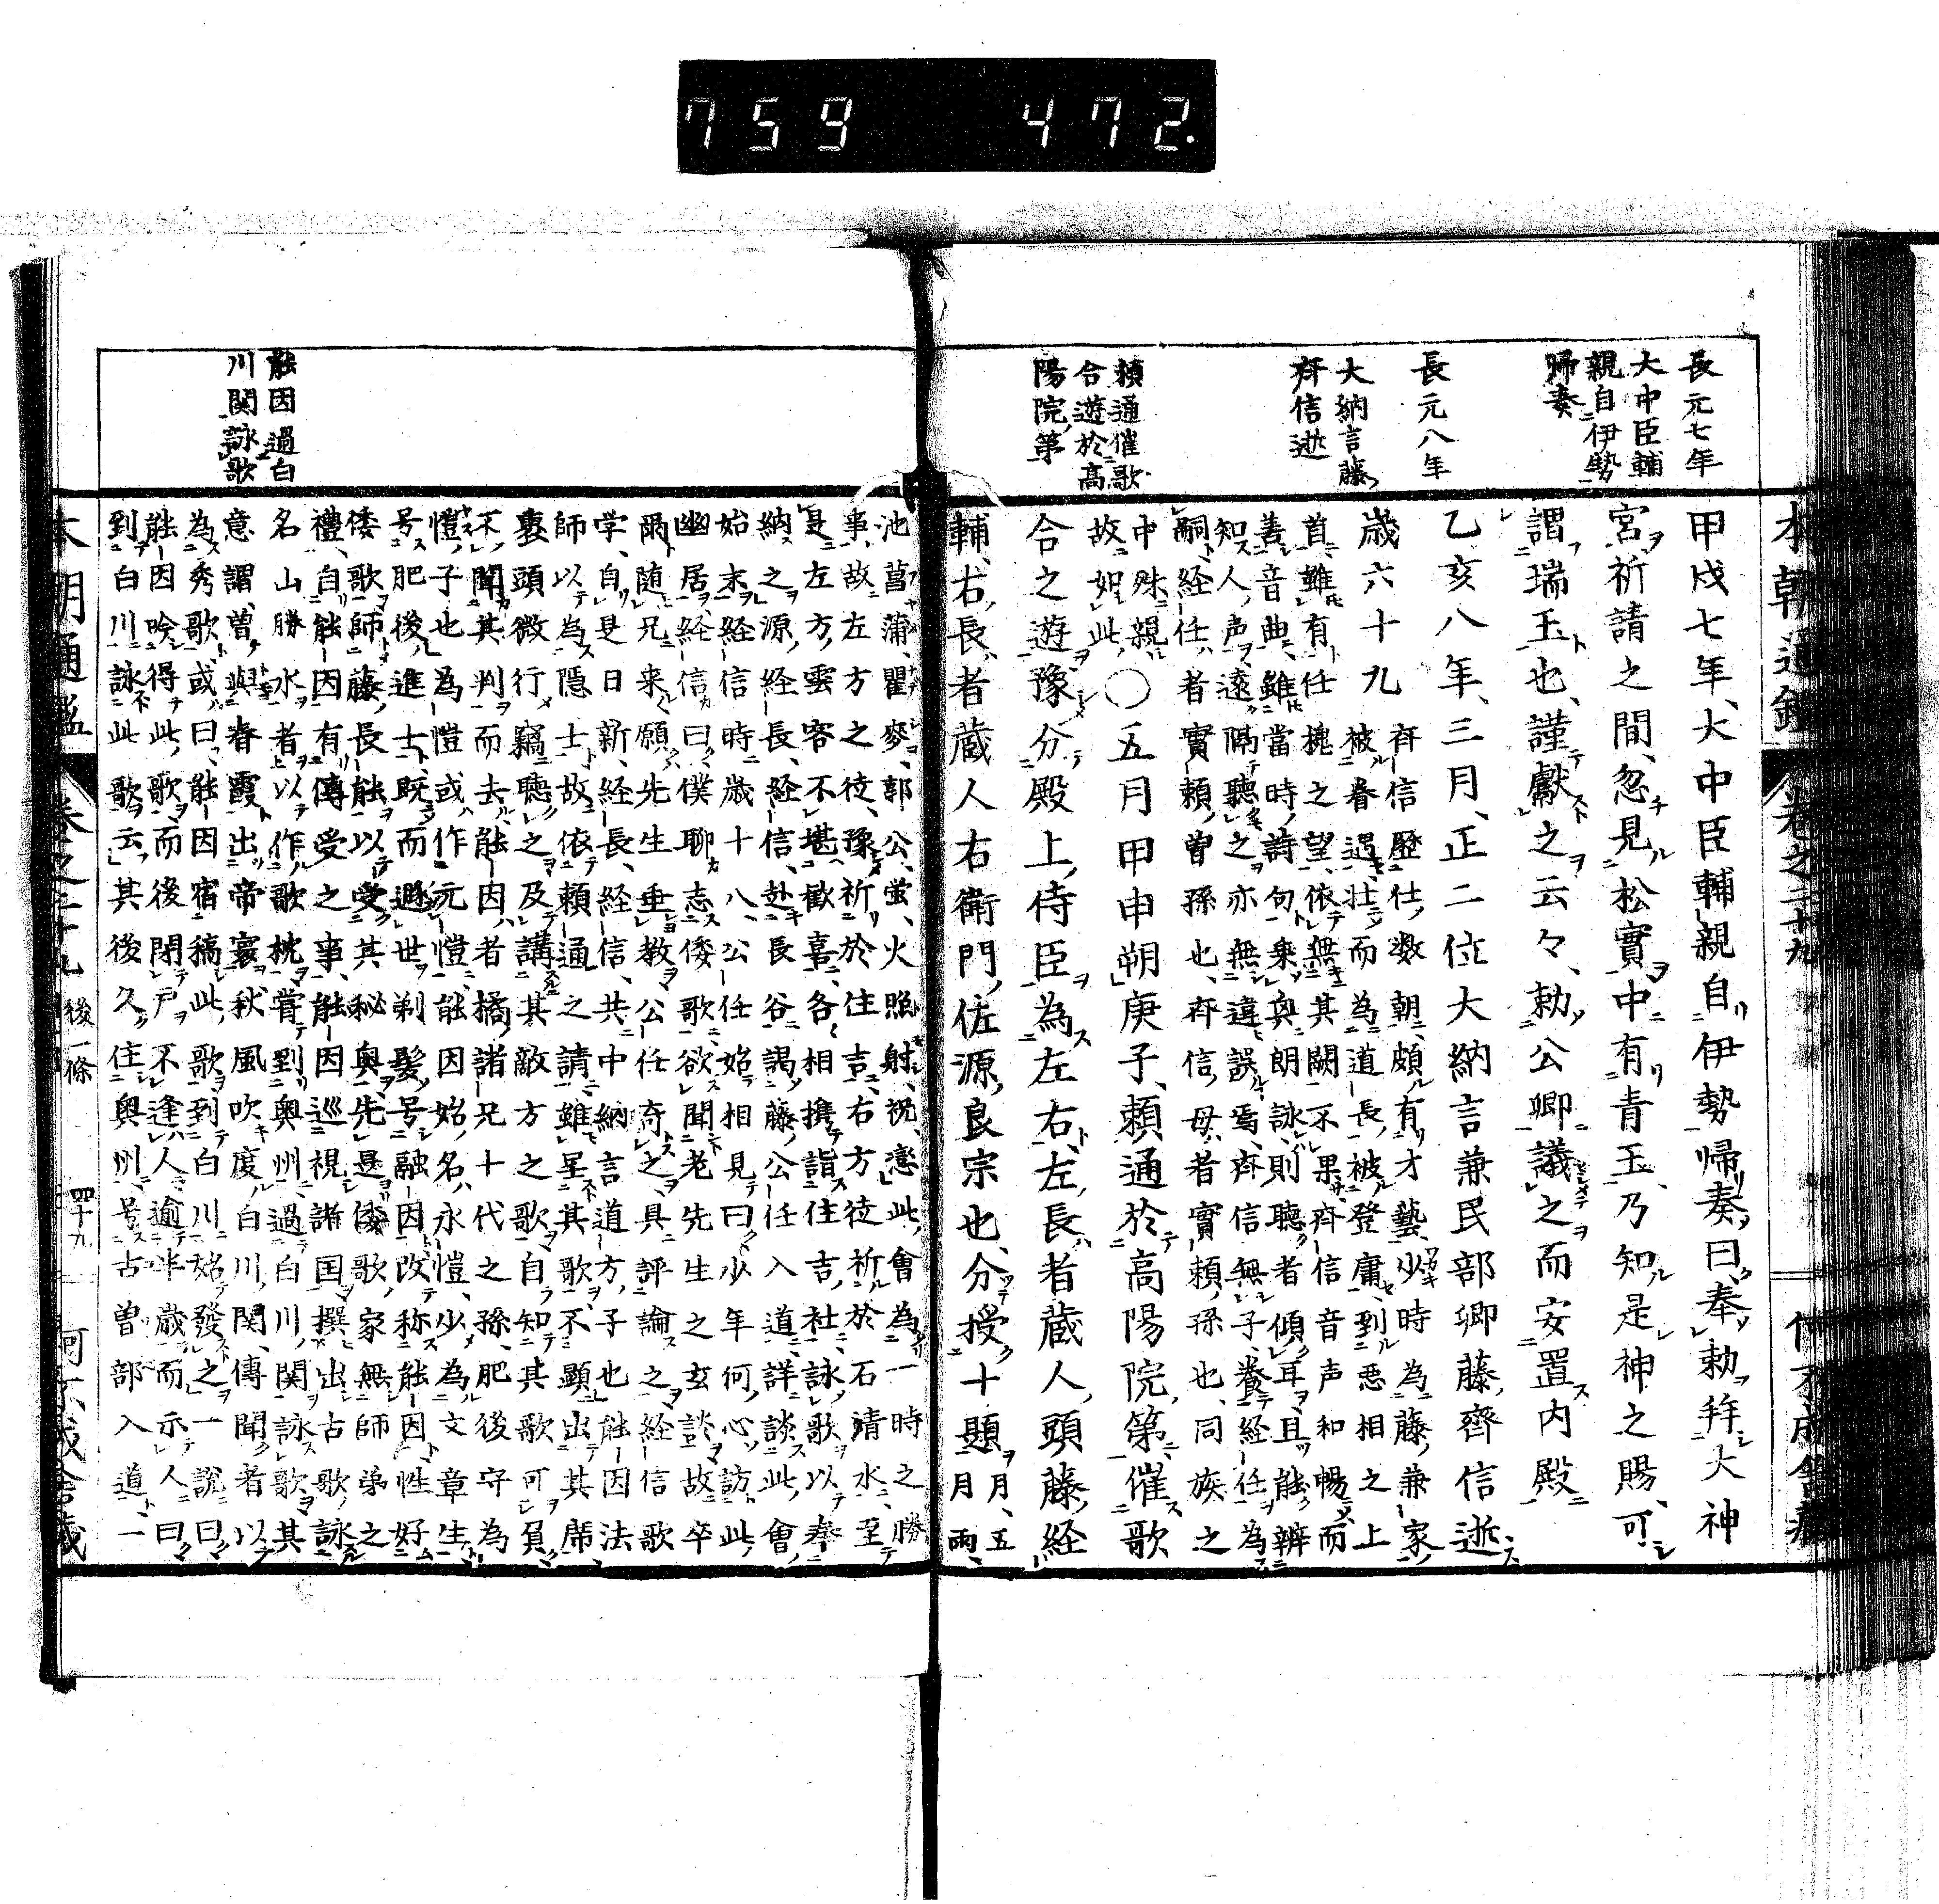 759 472.
長元七年
大中臣輔
親自伊勢
帰奏
長元八年
大納言藤
斉信逝
頼通催歌
合遊於高
陽院第
本朝通鑑 巻之二十九
甲戌七年、大中臣輔親自伊勢帰奏曰、奉勅拜大神
宮、祈請之間、忽見松實、中有青玉、乃知是神之賜、可
謂瑞玉也、謹獻之云々、勅公卿議之而安置内殿
乙亥八年、三月、正二位大納言兼民部卿藤齊信逝
歳六十九
斉信歷仕数朝、頗有才藝、少時為藤兼家
被眷遇、壮而為道長被登庸、到悪相之上
首、雖有任槐之望、依無其闕不果、斉信音声和暢而
善音曲、雖當時詩句、乗奥朗詠、則聴者傾耳、且能辨
知人声、遠隔聴之、亦無違誤焉、斉信無子、養経任為
嗣、経任者實頼曽孫也、斉信母者實頼孫也、同族之
中殊親、
故如此、
〇五月甲申朔庚子、頼通於高陽院第催歌
合之遊、豫分殿上侍臣為左右、左長者蔵人頭藤経
輔、右長者蔵人右衛門佐源良宗也、分授十題
月、五
月雨、
池菖蒲、瞿麥、郭公、蛍、火照射、祝、恋、此會為一時之勝
事、故左方之徒、豫祈於住吉、右方徒祈於石清水、至
是左方雲客不堪歓喜、各相携詣住吉社、詠歌以奉
納之、源経長、経信、赴長谷謁藤公任入道、詳談此會
始末、経信時歳十八、公任始相見曰、少年何心訪此
幽居、経信曰、僕聊志倭歌、欲聞老先生之玄談、故卒
爾随兄来、願先生垂教、公任奇之、具評論之、経信歌
学、自是日新、経長、経信、共中納言道方子也、能因法
師以為隠士、故依頼通之請、雖呈其歌、不顕出其席、
裹頭微行、竊聴之、及講其敵方之歌、自知其歌可負、
不聞其判而去、能因者橘諸兄十代之孫、肥後守為
愷子也、為愷或作元愷、能因始名永愷、少為文章生
号肥後進士、既而遯世剃髪、号融因、改称能因、性好
倭歌、師藤長能以受其秘奥、先是倭歌家無師弟之
禮、自能因有傳受之事、能因巡視諸国、撰出古歌、詠
名山勝水者、以作歌枕、嘗到奥州、過白川関詠歌、其
意謂、曽與春霞出帝寰、秋風吹度白川関、傳聞者以
為秀歌、或曰、能因宿稿此歌、到白川始發之、一説曰、
能因吟得此歌、而後閉戸不逢人、逾半歳而示人曰、
到白川詠此歌云、其後久住奥州、号古曽部入道、一
能因過白
川関詠歌
本朝通鑑 巻之二十九 後一條 四十九